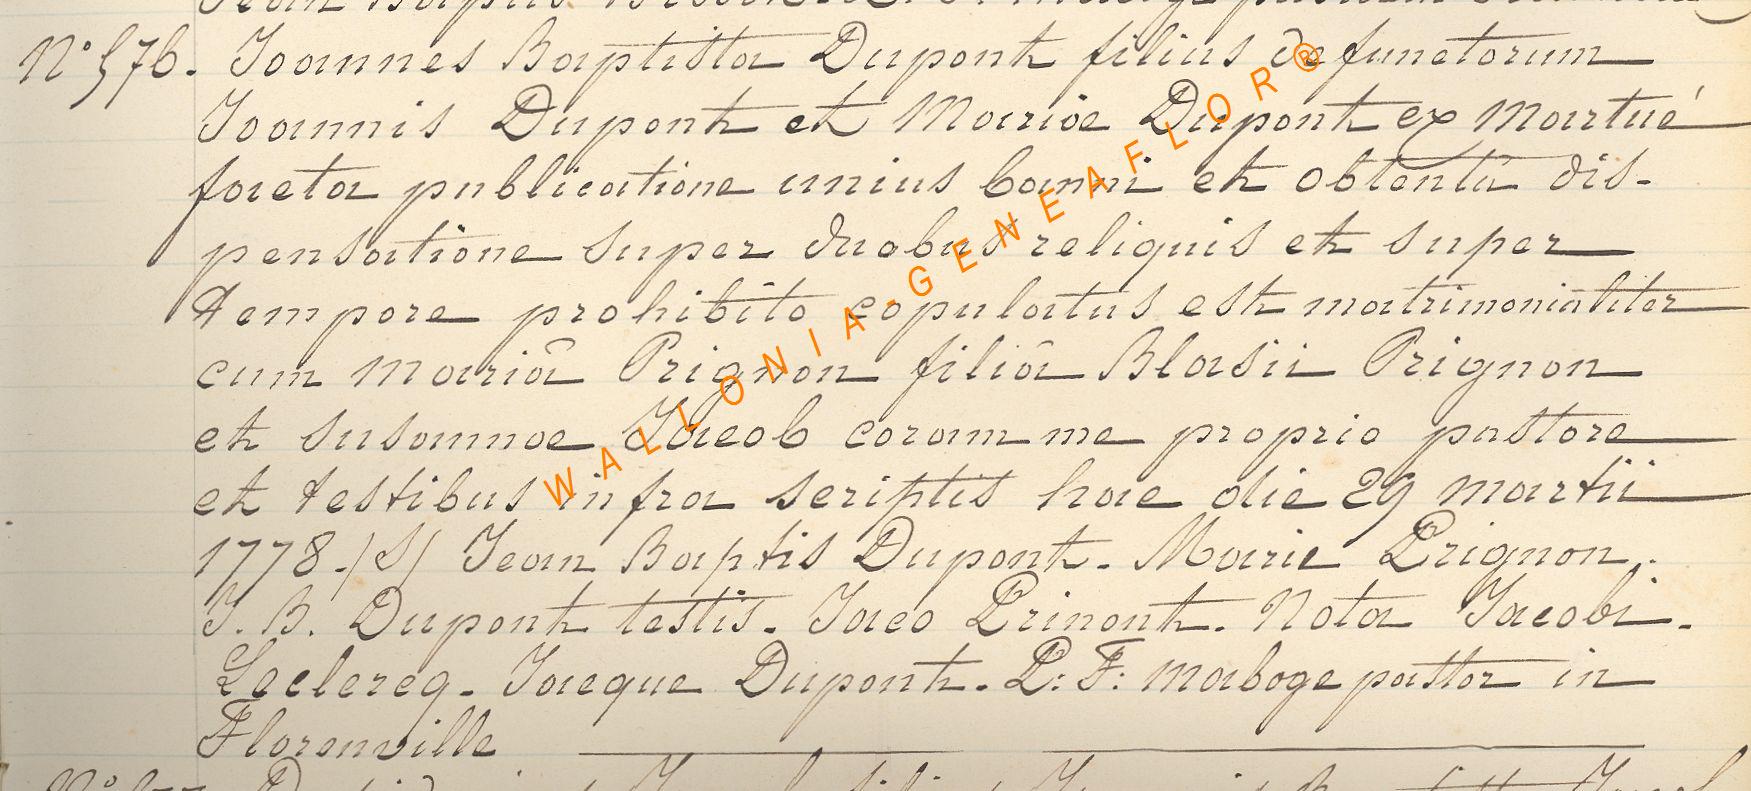 N° 576. Joannes Baptista Dupont filius defunctorum
Joannis Dupont et Mariae Dupont ex Martué
facta publicatione unius banni et obtentâ dis-
pensatione super duobus reliquis et super
tempore prohibito copulatus est matrimonialiter
cum mariâ Prignon filiâ Blasii Prignon
et susannae Jacob coram me proprio pastore
et testibus infra scriptis hac die 29 martii
1778. /S/ Jean Baptis Dupont. Marie Prignon.
J. B. Dupont testis. Jaco Prinont. Nota Jacobi.
Leclercq. Jacque Dupont. P: F: maboge pastor in
Florenville
WALLONIA-GENEAFLOR®